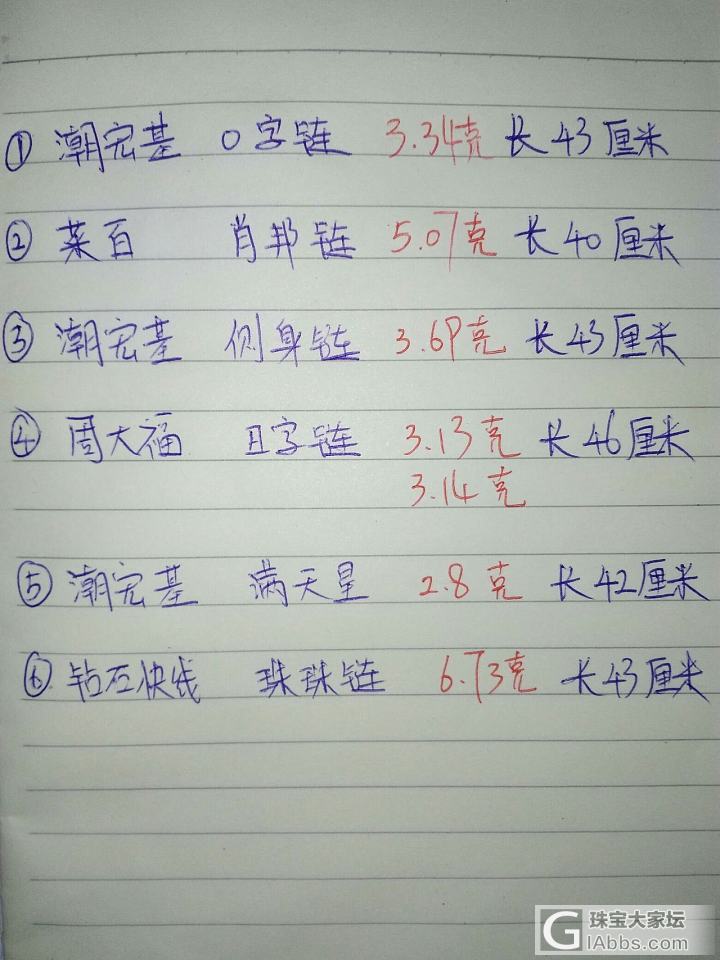 ① 潮宏基 O字链 3.34克 长43厘米
② 菜百 肖邦链 5.07克 长40厘米
③ 潮宏基 侧身链 3.69克 长43厘米
④ 周大福 日字链 3.13克 长46厘米
3.14克
⑤ 潮宏基 满天星 2.8克 长42厘米
⑥ 钻石快线 珠珠链 6.73克 长43厘米
G 珠宝大家坛
IAbbs.com